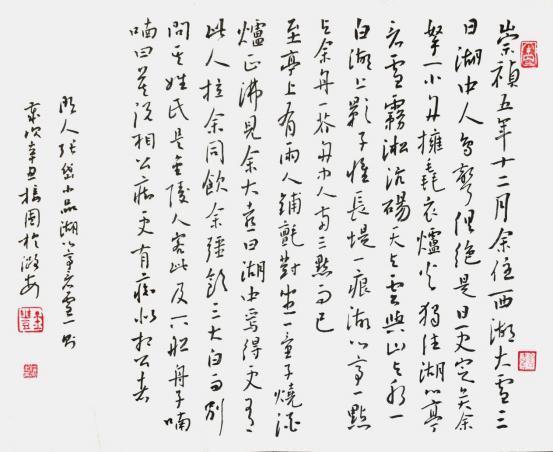 崇禎五年十二月余住西湖大雪三
日湖中人鳥聲俱絕是日更定矣余
拏一小舟擁毳衣爐火獨往湖心亭
看雪霧淞沆碭天与雲與山与水一
白湖上影子惟長堤一痕湖心亭一點
与余舟一芥舟中人兩三點而已
至亭上有兩人鋪氈對坐一童子燒酒
爐正沸見余大喜曰湖中焉得更有
此人拉余同飲余強飲三大白而別
問其姓氏是金陵人客此及下船舟子喃
喃曰莫說相公痴更有痴似相公者
明人張岱小品湖心亭看雪一則
歲次辛丑於